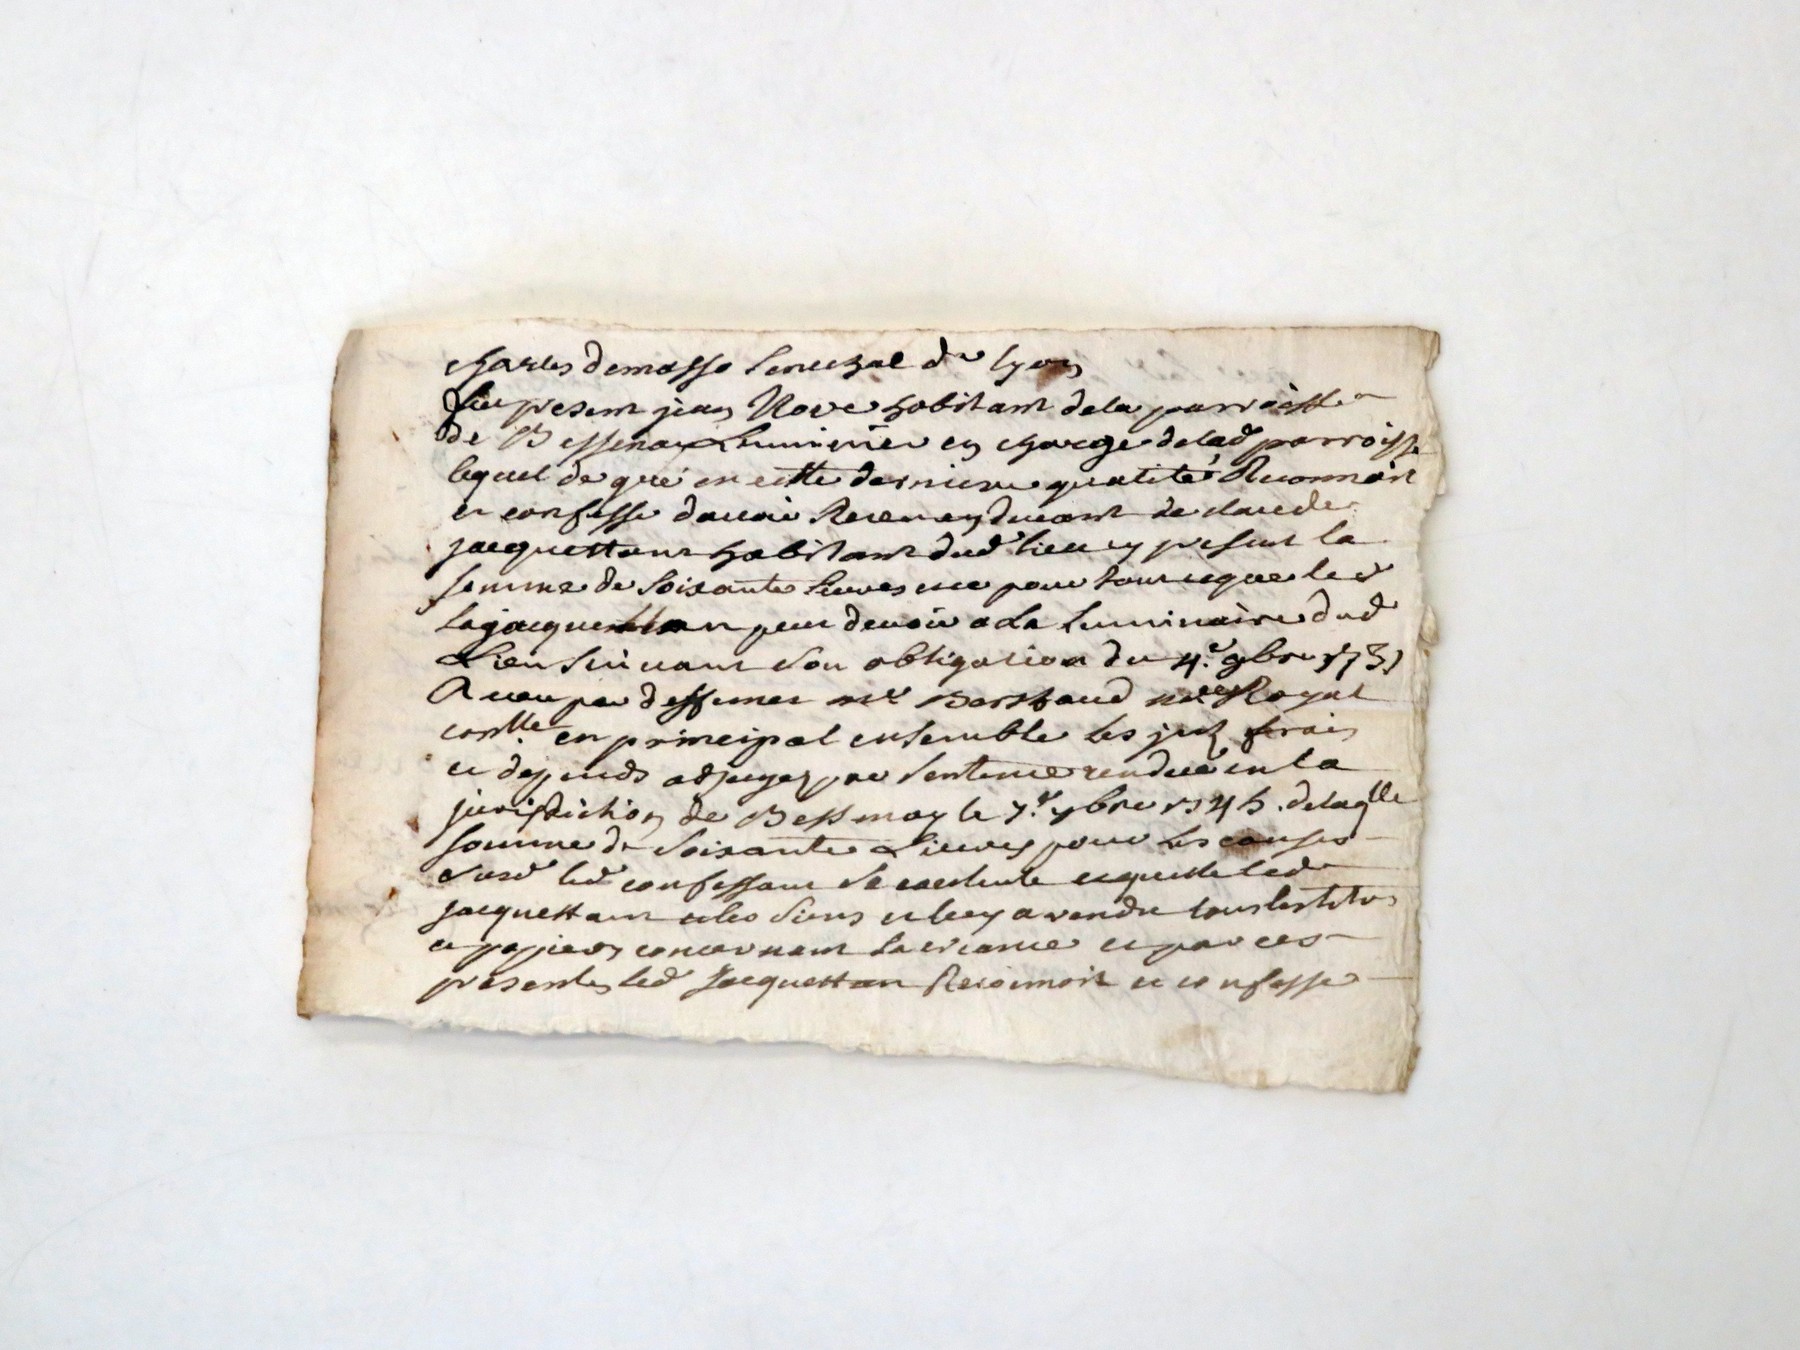 charles demasso senechal de lyon
fut present jean Nove habitant dela parroisse
de Bessenay Luminier en charge delad parroisse
lequel de gré en cette derniere qualité Reconnoit
et confesse davoir Receu cy devant de claude
jacquettant habitant dud lieu cy present la
somme de soixante livres pour tout ce que led
jacquettan peut devoir a La Luminaire dud
Lieu suivant son obligation du 4.e 9bre 1731
Receu par deffunct me Berthaud nre Royal
contllé en principal ensemble les frais
et depends adjugez par sentence rendue en la
jurisdiction de Bessenay le 7.e 7bre 1745. delaqlle
somme de soixante Livres pour les causes
susd led confessant se contente et quitte led
jacquettant et les siens et luy a rendu tous les titres
et papiers concernant la creance et par ces
presentes led Jacquettan Reconnoit et confesse